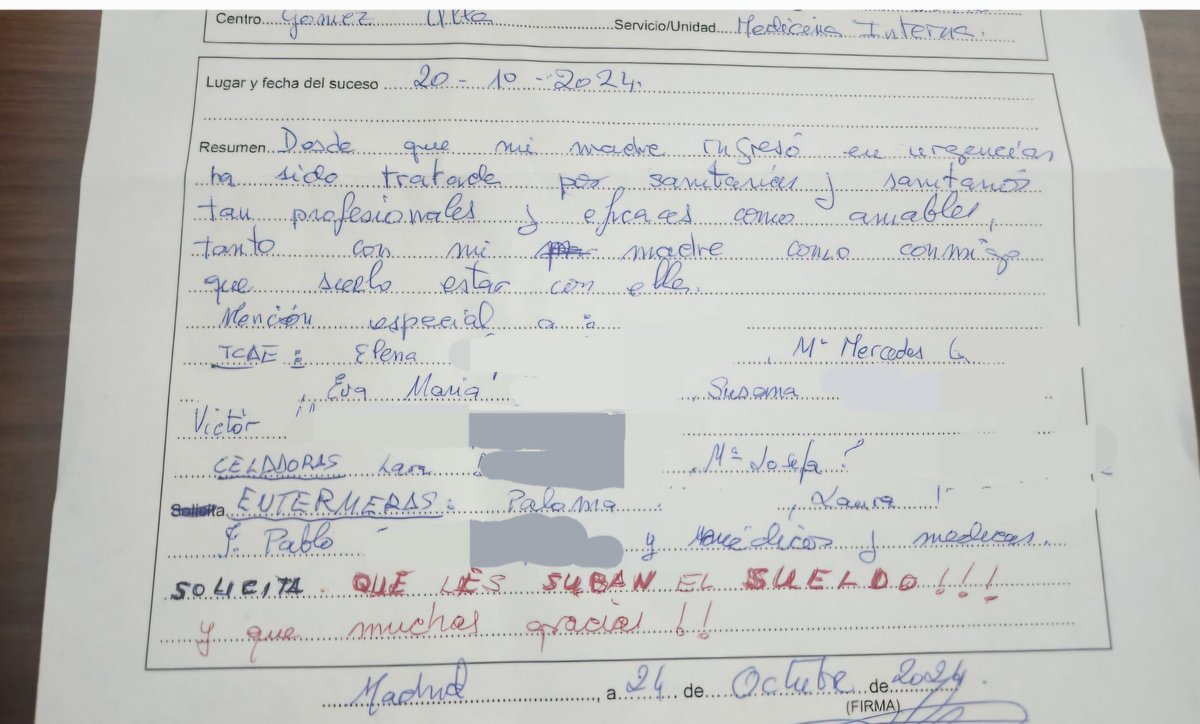 Centro Gómez Ulla Servicio/Unidad Medicina Interna.
Lugar y fecha del suceso 20-10-2024.
Resumen Desde que mi madre ingresó en urgencias
ha sido tratada por sanitarias y sanitarios
tan profesionales y eficaces como amables,
tanto con mi madre como conmigo
que suelo estar con ella.
Mención especial a:
TCAE: Elena , Mª Mercedes G
, Eva María , Susana
Victor
CELADORAS Lara , Mª Josefa
Solicita ENFERMERAS: Paloma , Laura
F. Pablo y médicos y medicas.
SOLICITA QUE LES SUBAN EL SUELDO!!!
y que muchas gracias!!
Madrid, a 24 de Octubre de 2024.
(FIRMA)